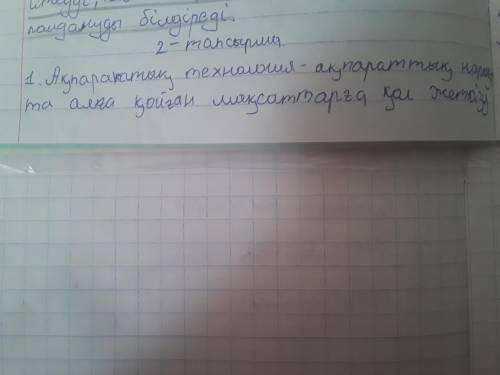 пайдалануды білдіреді.
2-тапсырма.
1. Ақпараттық технология - ақпараттық
та алға қойған мақсаттарға қол жеткізу